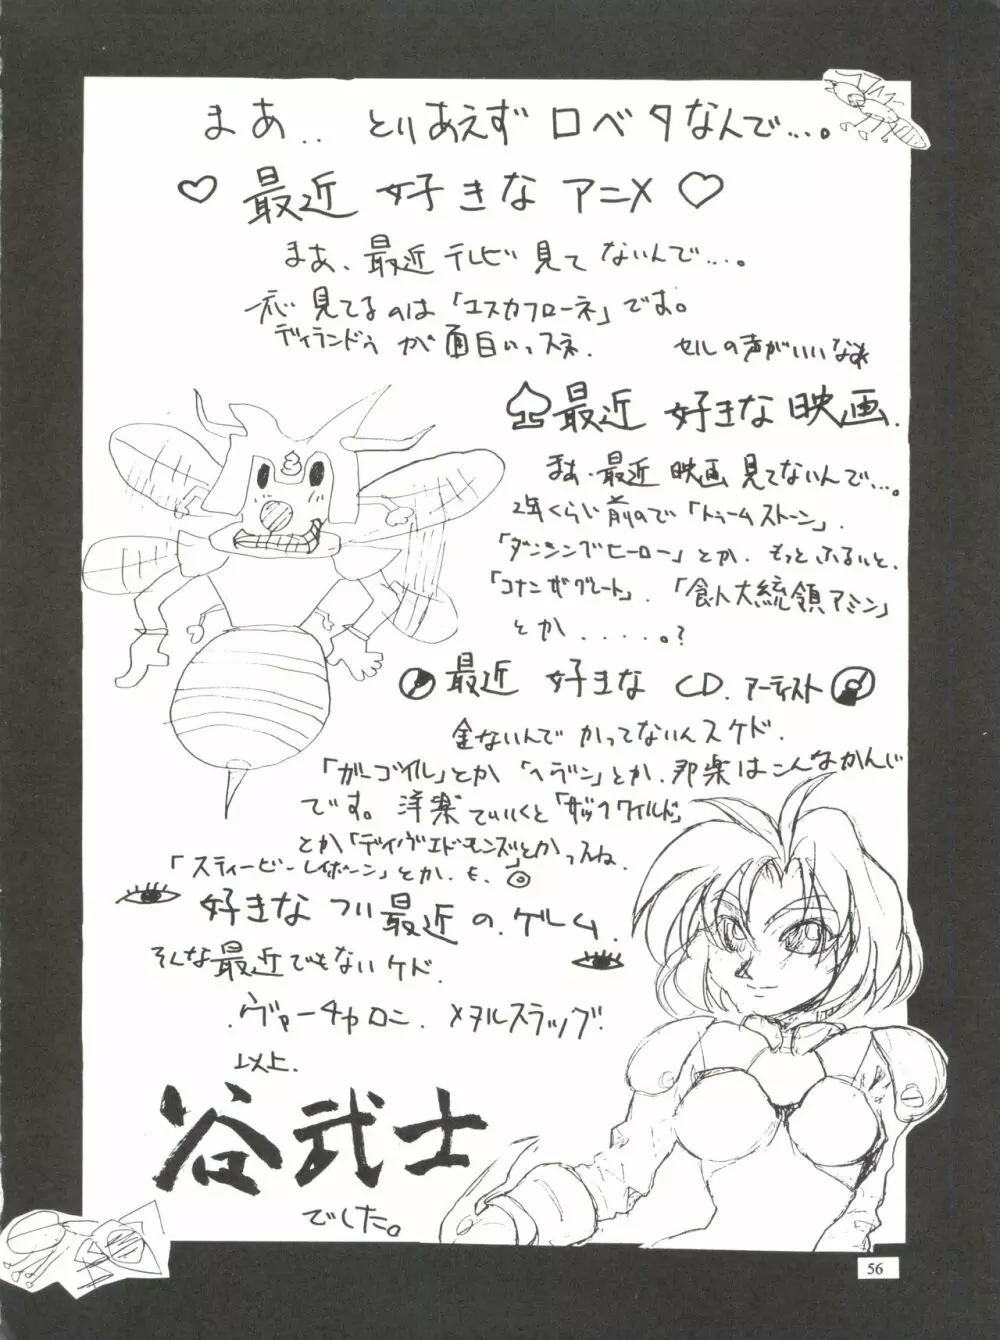 まあ.. とりあえず ロベタなんで...。
♡ 最近 好きな アニメ ♡
まあ、最近 テレビ 見て ないんで...。
見てるのは「エスカフローネ」です。
ディランドゥ が 面白いっスネ.
セルの声がいいなぁ
♤最近 好きな 映画.
まあ、最近 映画 見てないんで...。
2年くらい前ので「トゥームストーン」.
「ダンシングヒーロー」とか. もっとふるいと.
「コナンザグレート」.「食人大統領アミン」
とか.....。?
最近 好きな CD. アーティスト
金ないんで かってないんスケド.
「ガーゴイル」とか「ヘヴン」とか. 邦楽はこんなかんじ
です。洋楽でいくと「ザックワイルド」
とか「デイヴエドモンズ」とかっスね.
「スティービーレイボーン」とか. も.
好きな つい最近 の. ゲーム.
そんな最近でもないケド.
.ヴァーチャロン. メタルスラッグ!
以上.
谷武士
でした。
56